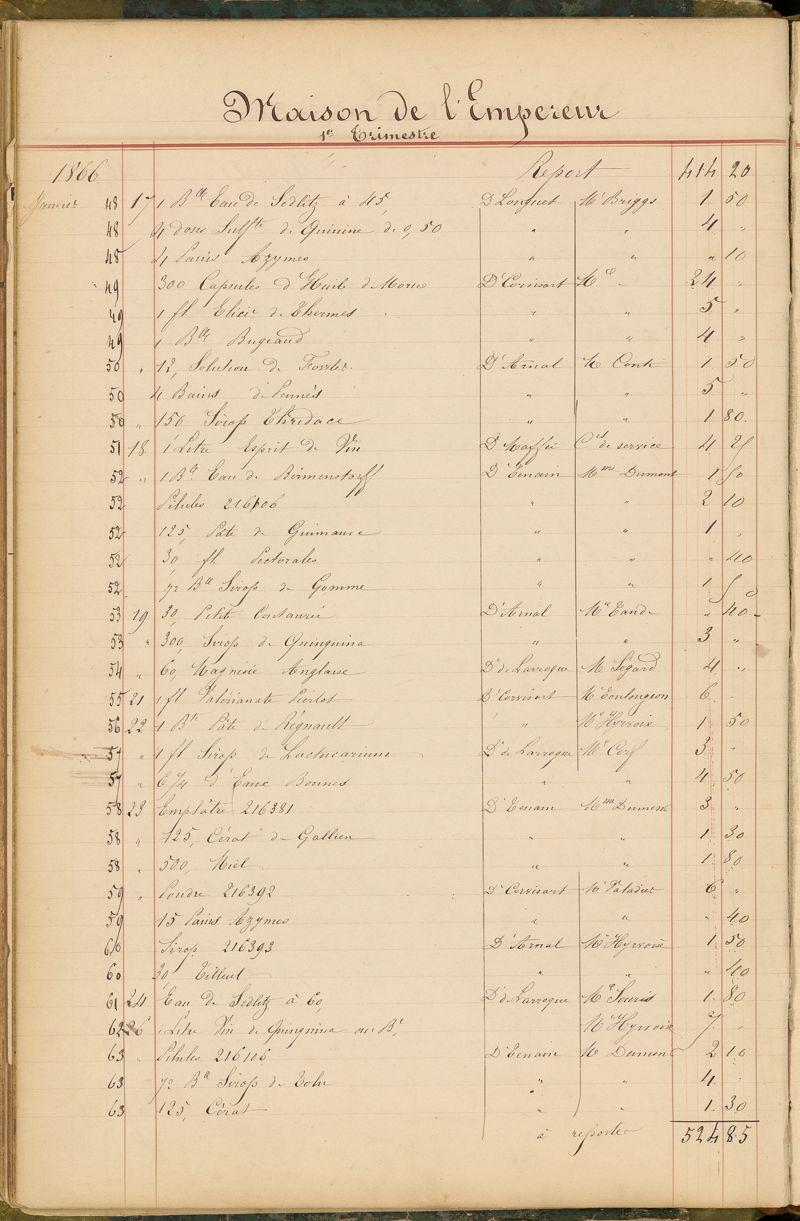 Maison de l'Empereur
1er Trimestre
1866 Report 414 20
Janvier 48 17 1 Blle Eau de Sedlitz à 45, Dr Longuet Mr Briggs 1 50
48 4 doses Sulfte de Quinine de 0,50 " " 4 "
48 4 Pains Azymes " " " 10
49 300 Capsules d'Huile de Morue Dr Corvisart 24 "
49 1 fl Elixir de Thermes " " 5 "
49 1 Blle Bugeaud " " 4 "
50 " 12, Solution de Dr Arnal Mr Conti 1 50
50 4 Bains de Pennès " " 5 "
50 " 150 Sirop Thridace " " 1 80
51 18 1 Litre Esprit de Vin Dr Maffei de service 4 25
52 " 1 Blle Eau de Birmenstorff Dr Tenain Mme Dumont 1 50
52 Pilules 216106 " " 2 10
52 125, Pâte de Guimauve " " 1 "
52 30, fl Pectorales " " " 40
52 1/2 Blle Sirop de Gomme " " 1 50
53 19 30, Petite Centaurée Dr Arnal " 40
53 " 300, Sirop de Quinquina " " 3 "
54 " 60, Magnésie Anglaise Dr de Larroque Mr Segard 4 "
55 21 1 fl Valérianate Pierlot Dr Corvisart Mr Toulongeon 6 "
56 22 1 Bte Pâte de Régnault " Mr Hyrvoix 1 50
57 " 1 fl Sirop de Lactucarium Dr de Larroque Mr Cerf 3 "
57 " 6/4 d'Eaux Bonnes " " 4 50
58 23 Emplâtre 216381 Dr Tenain Mme Dumont 3 "
58 " 125, Cérat de Gallien " " 1 30
58 " 500, Miel " " 1 80
59 " Poudre 216392 Dr Corvisart 6 "
59 15 Pains Azymes " " " 40
60 Sirop 216393 Dr Arnal Mr Hyrvoix 1 50
60 30, Tilleul " " " 40
61 24 Eau de Sedlitz à 60, Dr de Larroque Mr Souris 1 80
62 26 1 Litre Vin de Quinquina au Bx, Mr Hyrvoix 7 "
63 " Pilules 216106 Dr Tenain Mr Dumont 2 10
63 1/2 Blle Sirop de Tolu " " 4 "
63 125, Cérat " " 1 30
à reporter 524 85